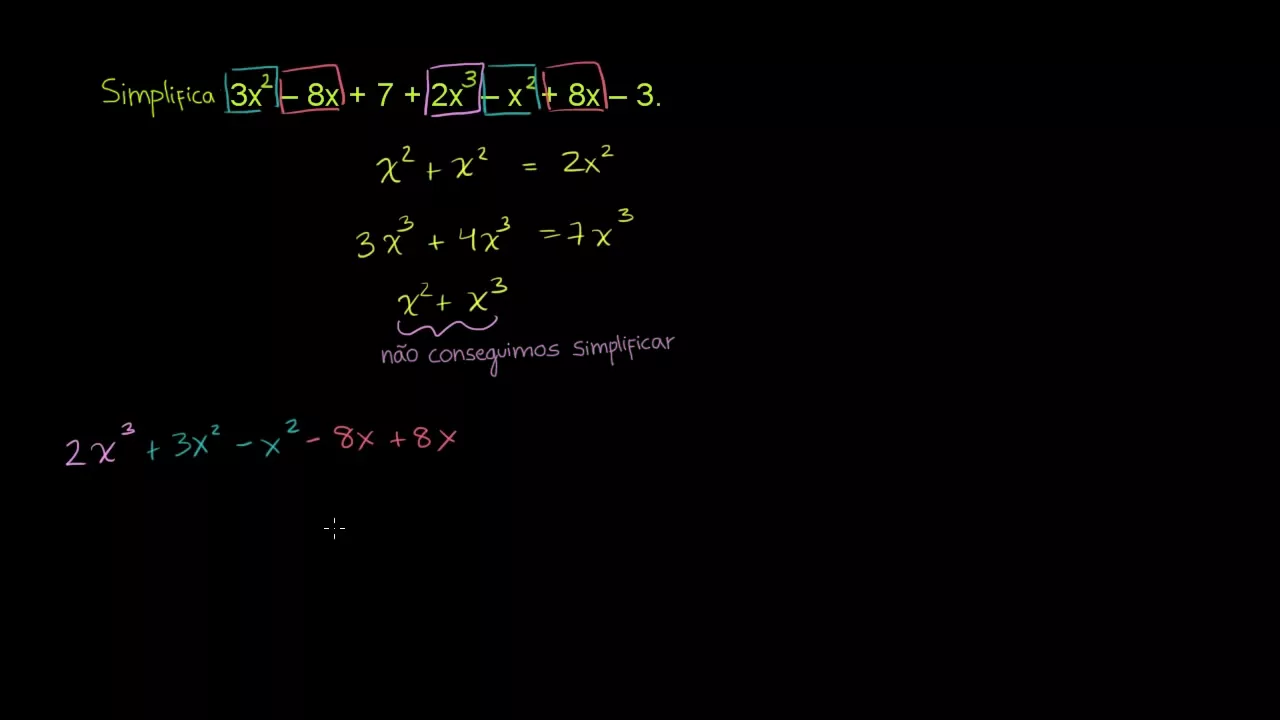 Simplifica 3x² – 8x + 7 + 2x³ – x² + 8x – 3.
x² + x² = 2x²
3x³ + 4x³ = 7x³
x² + x³
não conseguimos simplificar
2x³ + 3x² - x² - 8x + 8x